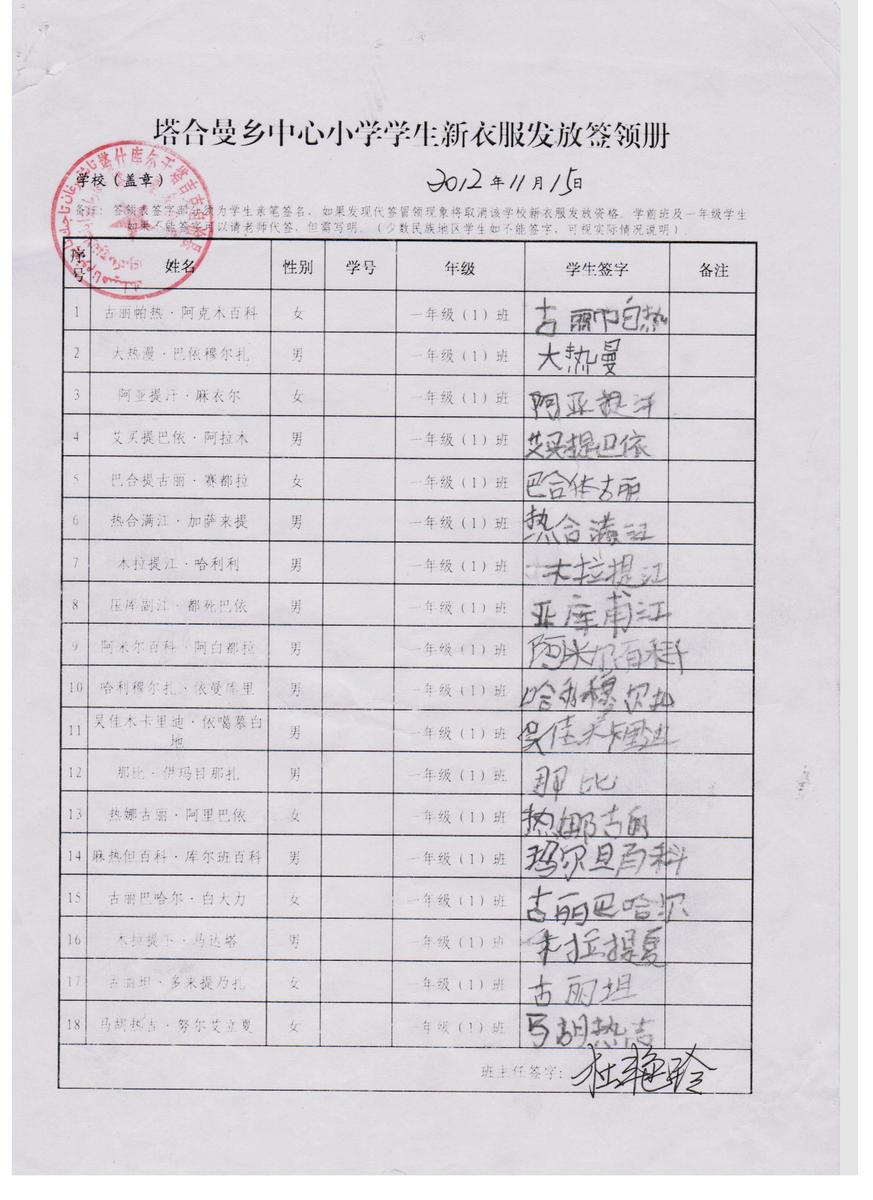 塔合曼乡中心小学学生新衣服发放签领册
学校（盖章） 2012年11月15日
备注：签领表签字部分须为学生亲笔签名，如果发现代签冒领现象将取消该学校新衣服发放资格。学前班及一年级学生
如果不能签字可以请老师代签，但需写明。（少数民族地区学生如不能签字，可视实际情况说明）
序号 姓名 性别 学号 年级 学生签字 备注
1 古丽帕热·阿克木百科 女 一年级（1）班 古丽巾白热
2 大热漫·巴依穆尔扎 男 一年级（1）班 大热曼
3 阿亚提汗·麻衣尔 女 一年级（1）班 阿亚提汗
4 艾买提巴依·阿拉木 男 一年级（1）班 艾买提巴依
5 巴合提古丽·赛都拉 女 一年级（1）班 巴合体古丽
6 热合满江·加萨来提 男 一年级（1）班 热合满江
7 木拉提江·哈利利 男 一年级（1）班 木拉提江
8 压库副江·都死巴依 男 一年级（1）班 亚库甫江
9 阿米尔百科·阿白都拉 男 一年级（1）班 阿米尔百科
10 哈利穆尔扎·依曼库里 男 一年级（1）班 哈利穆尔扎
11 吴佳木卡里迪·依噶慕白地 男 一年级（1）班 吴佳木卡里迪
12 那比·伊玛目那扎 男 一年级（1）班 那比
13 热娜古丽·阿里巴依 女 一年级（1）班 热娜古丽
14 麻热但百科·库尔班百科 男 一年级（1）班 玛尔旦百科
15 古丽巴哈尔·白大力 女 一年级（1）班 古丽巴哈尔
16 木拉提下·马达塔 男 一年级（1）班 木拉提夏
17 古丽坦·多来提乃扎 女 一年级（1）班 古丽坦
18 马胡热古·努尔艾立夏 女 一年级（1）班 马胡热古
班主任签字：杜艳玲